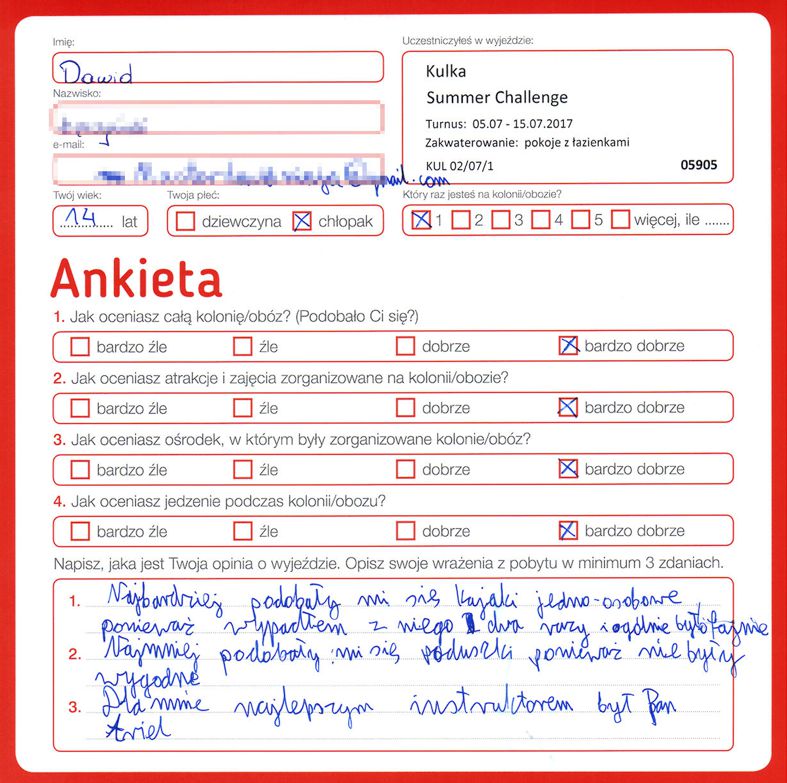 Imię:
Dawid
Nazwisko:
e-mail:
@gmail.com
Twój wiek:
14 lat
Twoja płeć:
dziewczyna chłopak
Uczestniczyłeś w wyjeździe:
Kulka
Summer Challenge
Turnus: 05.07 - 15.07.2017
Zakwaterowanie: pokoje z łazienkami
KUL 02/07/1 05905
Który raz jesteś na kolonii/obozie?
1 2 3 4 5 więcej, ile .......
Ankieta
1. Jak oceniasz całą kolonię/obóz? (Podobało Ci się?)
bardzo źle źle dobrze bardzo dobrze
2. Jak oceniasz atrakcje i zajęcia zorganizowane na kolonii/obozie?
bardzo źle źle dobrze bardzo dobrze
3. Jak oceniasz ośrodek, w którym były zorganizowane kolonie/obóz?
bardzo źle źle dobrze bardzo dobrze
4. Jak oceniasz jedzenie podczas kolonii/obozu?
bardzo źle źle dobrze bardzo dobrze
Napisz, jaka jest Twoja opinia o wyjeździe. Opisz swoje wrażenia z pobytu w minimum 3 zdaniach.
1. Najbardziej podobały mi się kajaki jedno-osobowe
ponieważ wypadłem z niego dwa razy i ogólnie było fajnie
2. Najmniej podobały mi się poduszki ponieważ nie były
wygodne
3. Dla mnie najlepszym instruktorem był Pan
Ariel